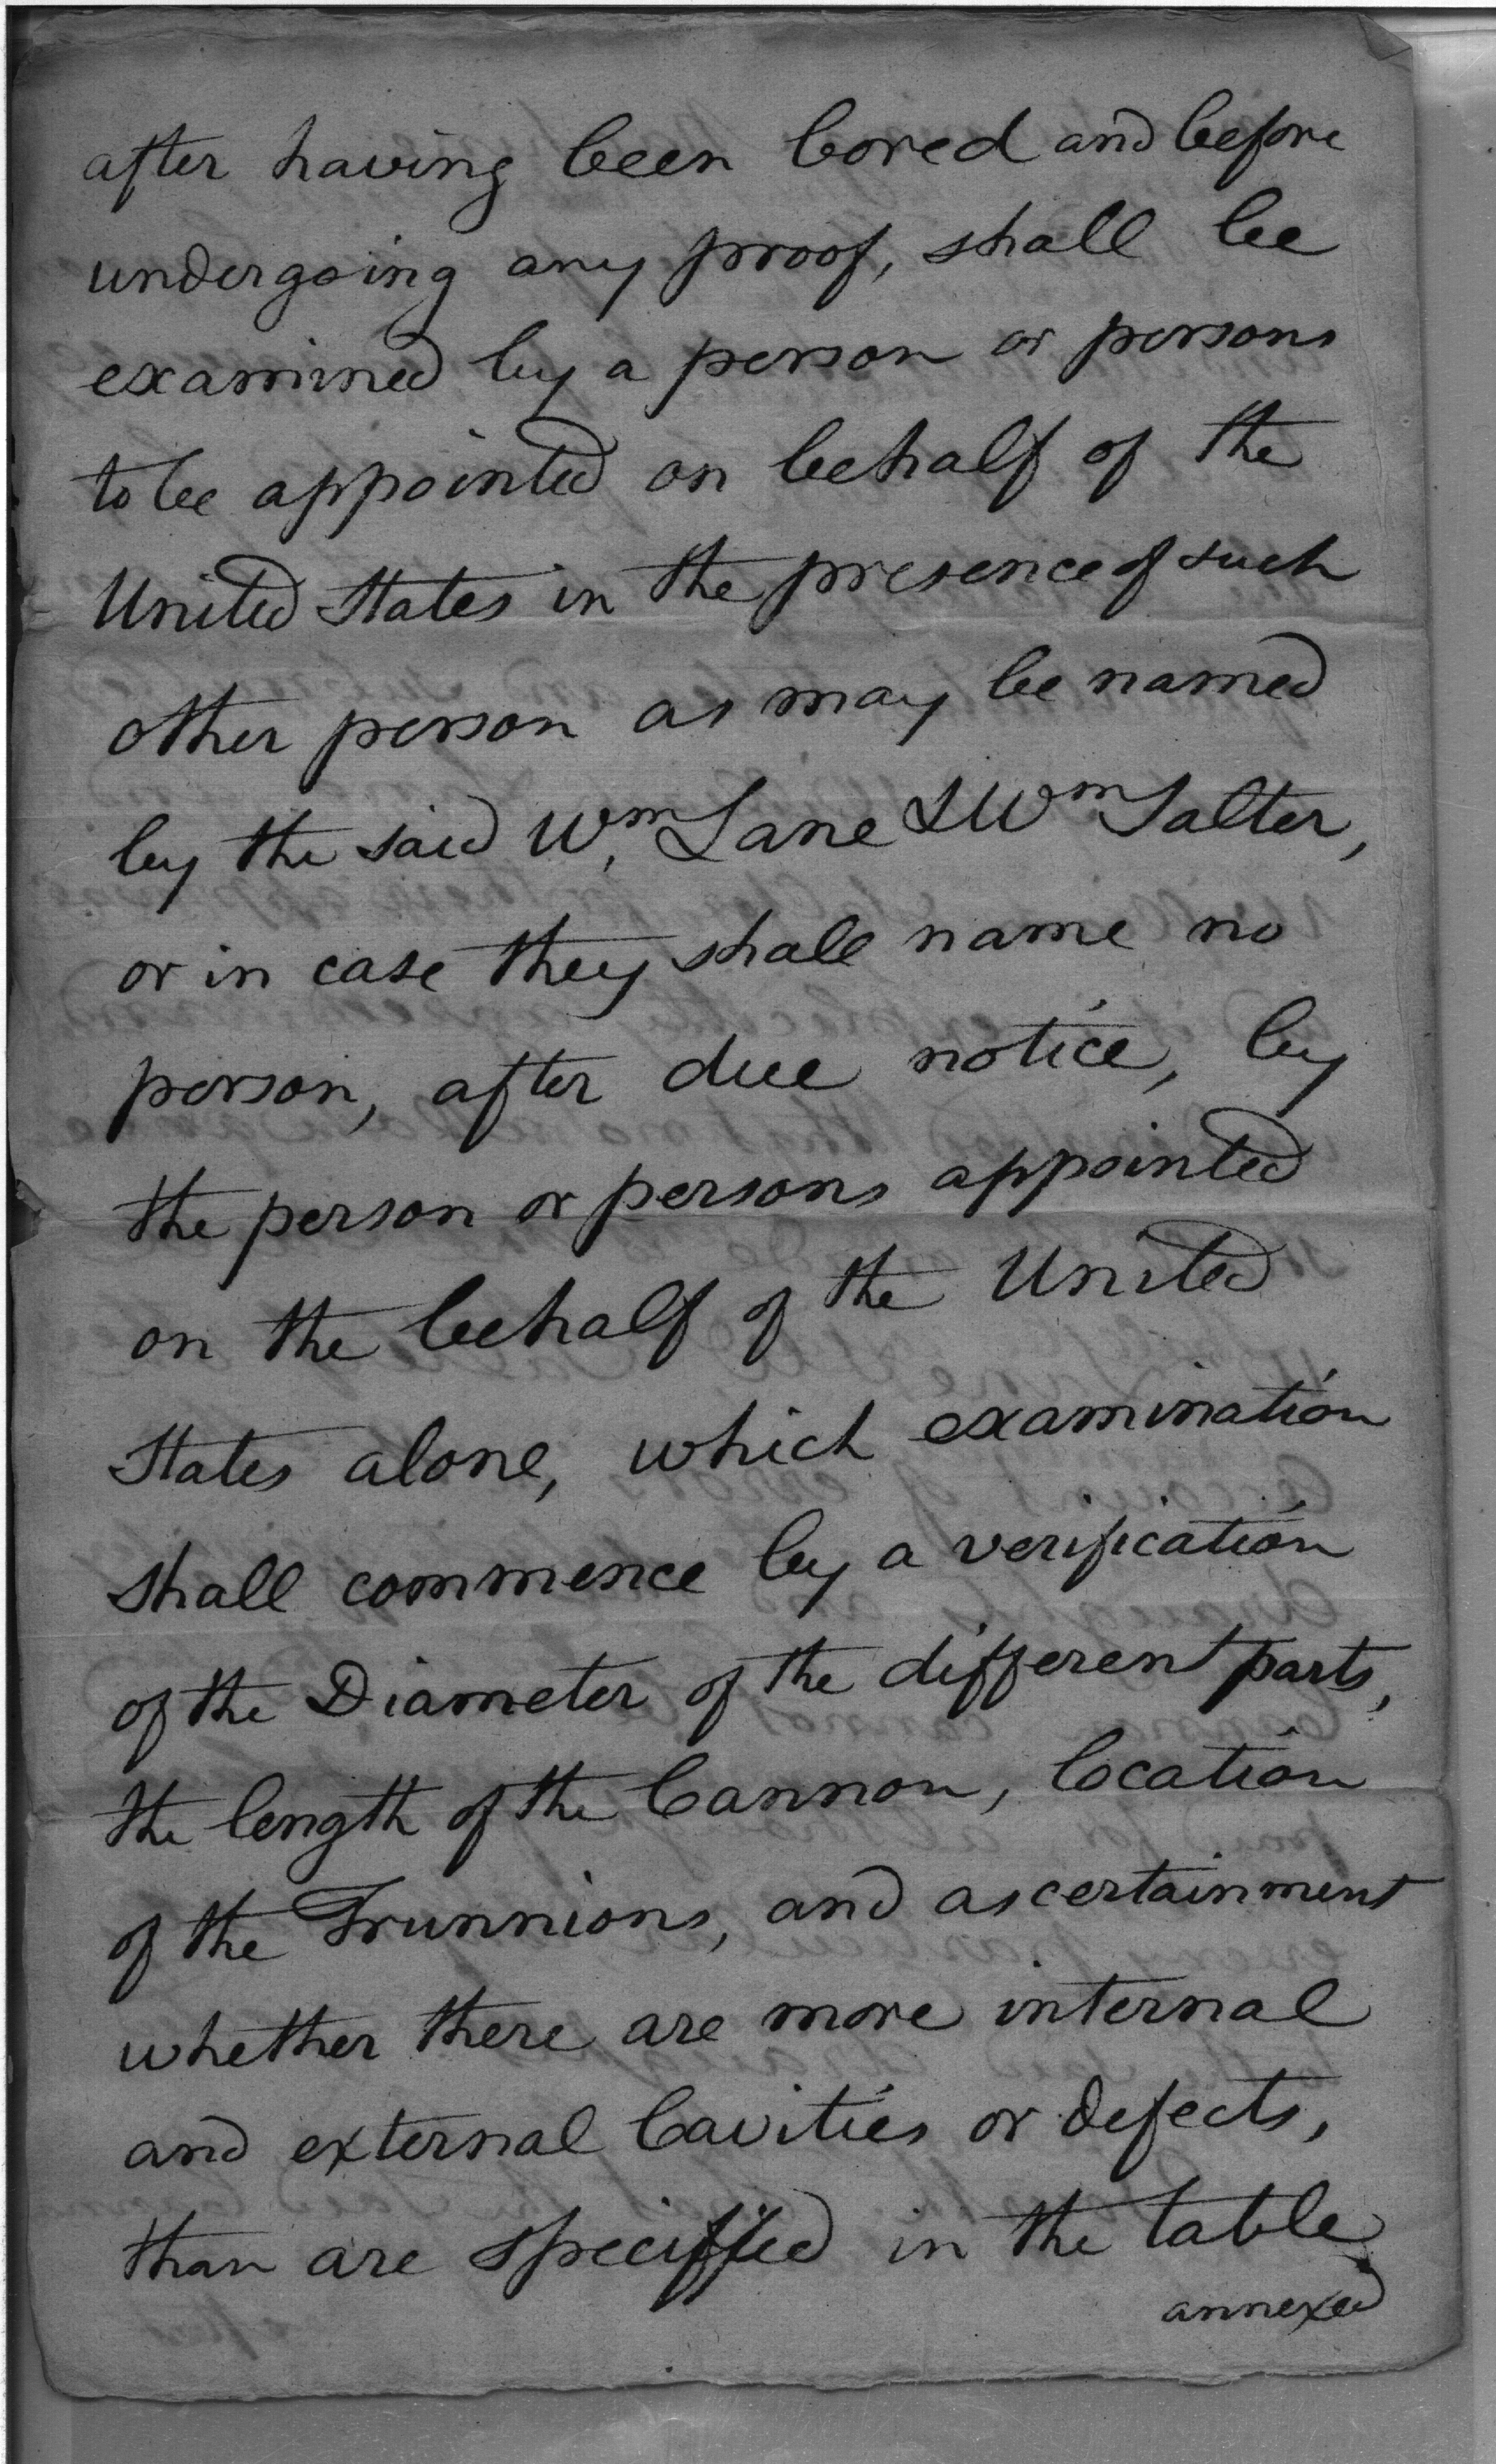 after having been bored and before
undergoing any proof, shall be
examined by a person or persons
to be appointed on behalf of the
United States in the presence of such
other person as may be named
by the said Wm. Lane & Wm Salter,
or in case they shall name no
person, after due notice, by
the person or persons appointed
on the behalf of the United
States alone, which examination
shall commence by a verification
of the Diameter of the different parts,
the length of the Cannon, location
of the Trunnions, and ascertainment
whether there are more internal
and external Cavities or defects,
than are speciffied in the table
annexed